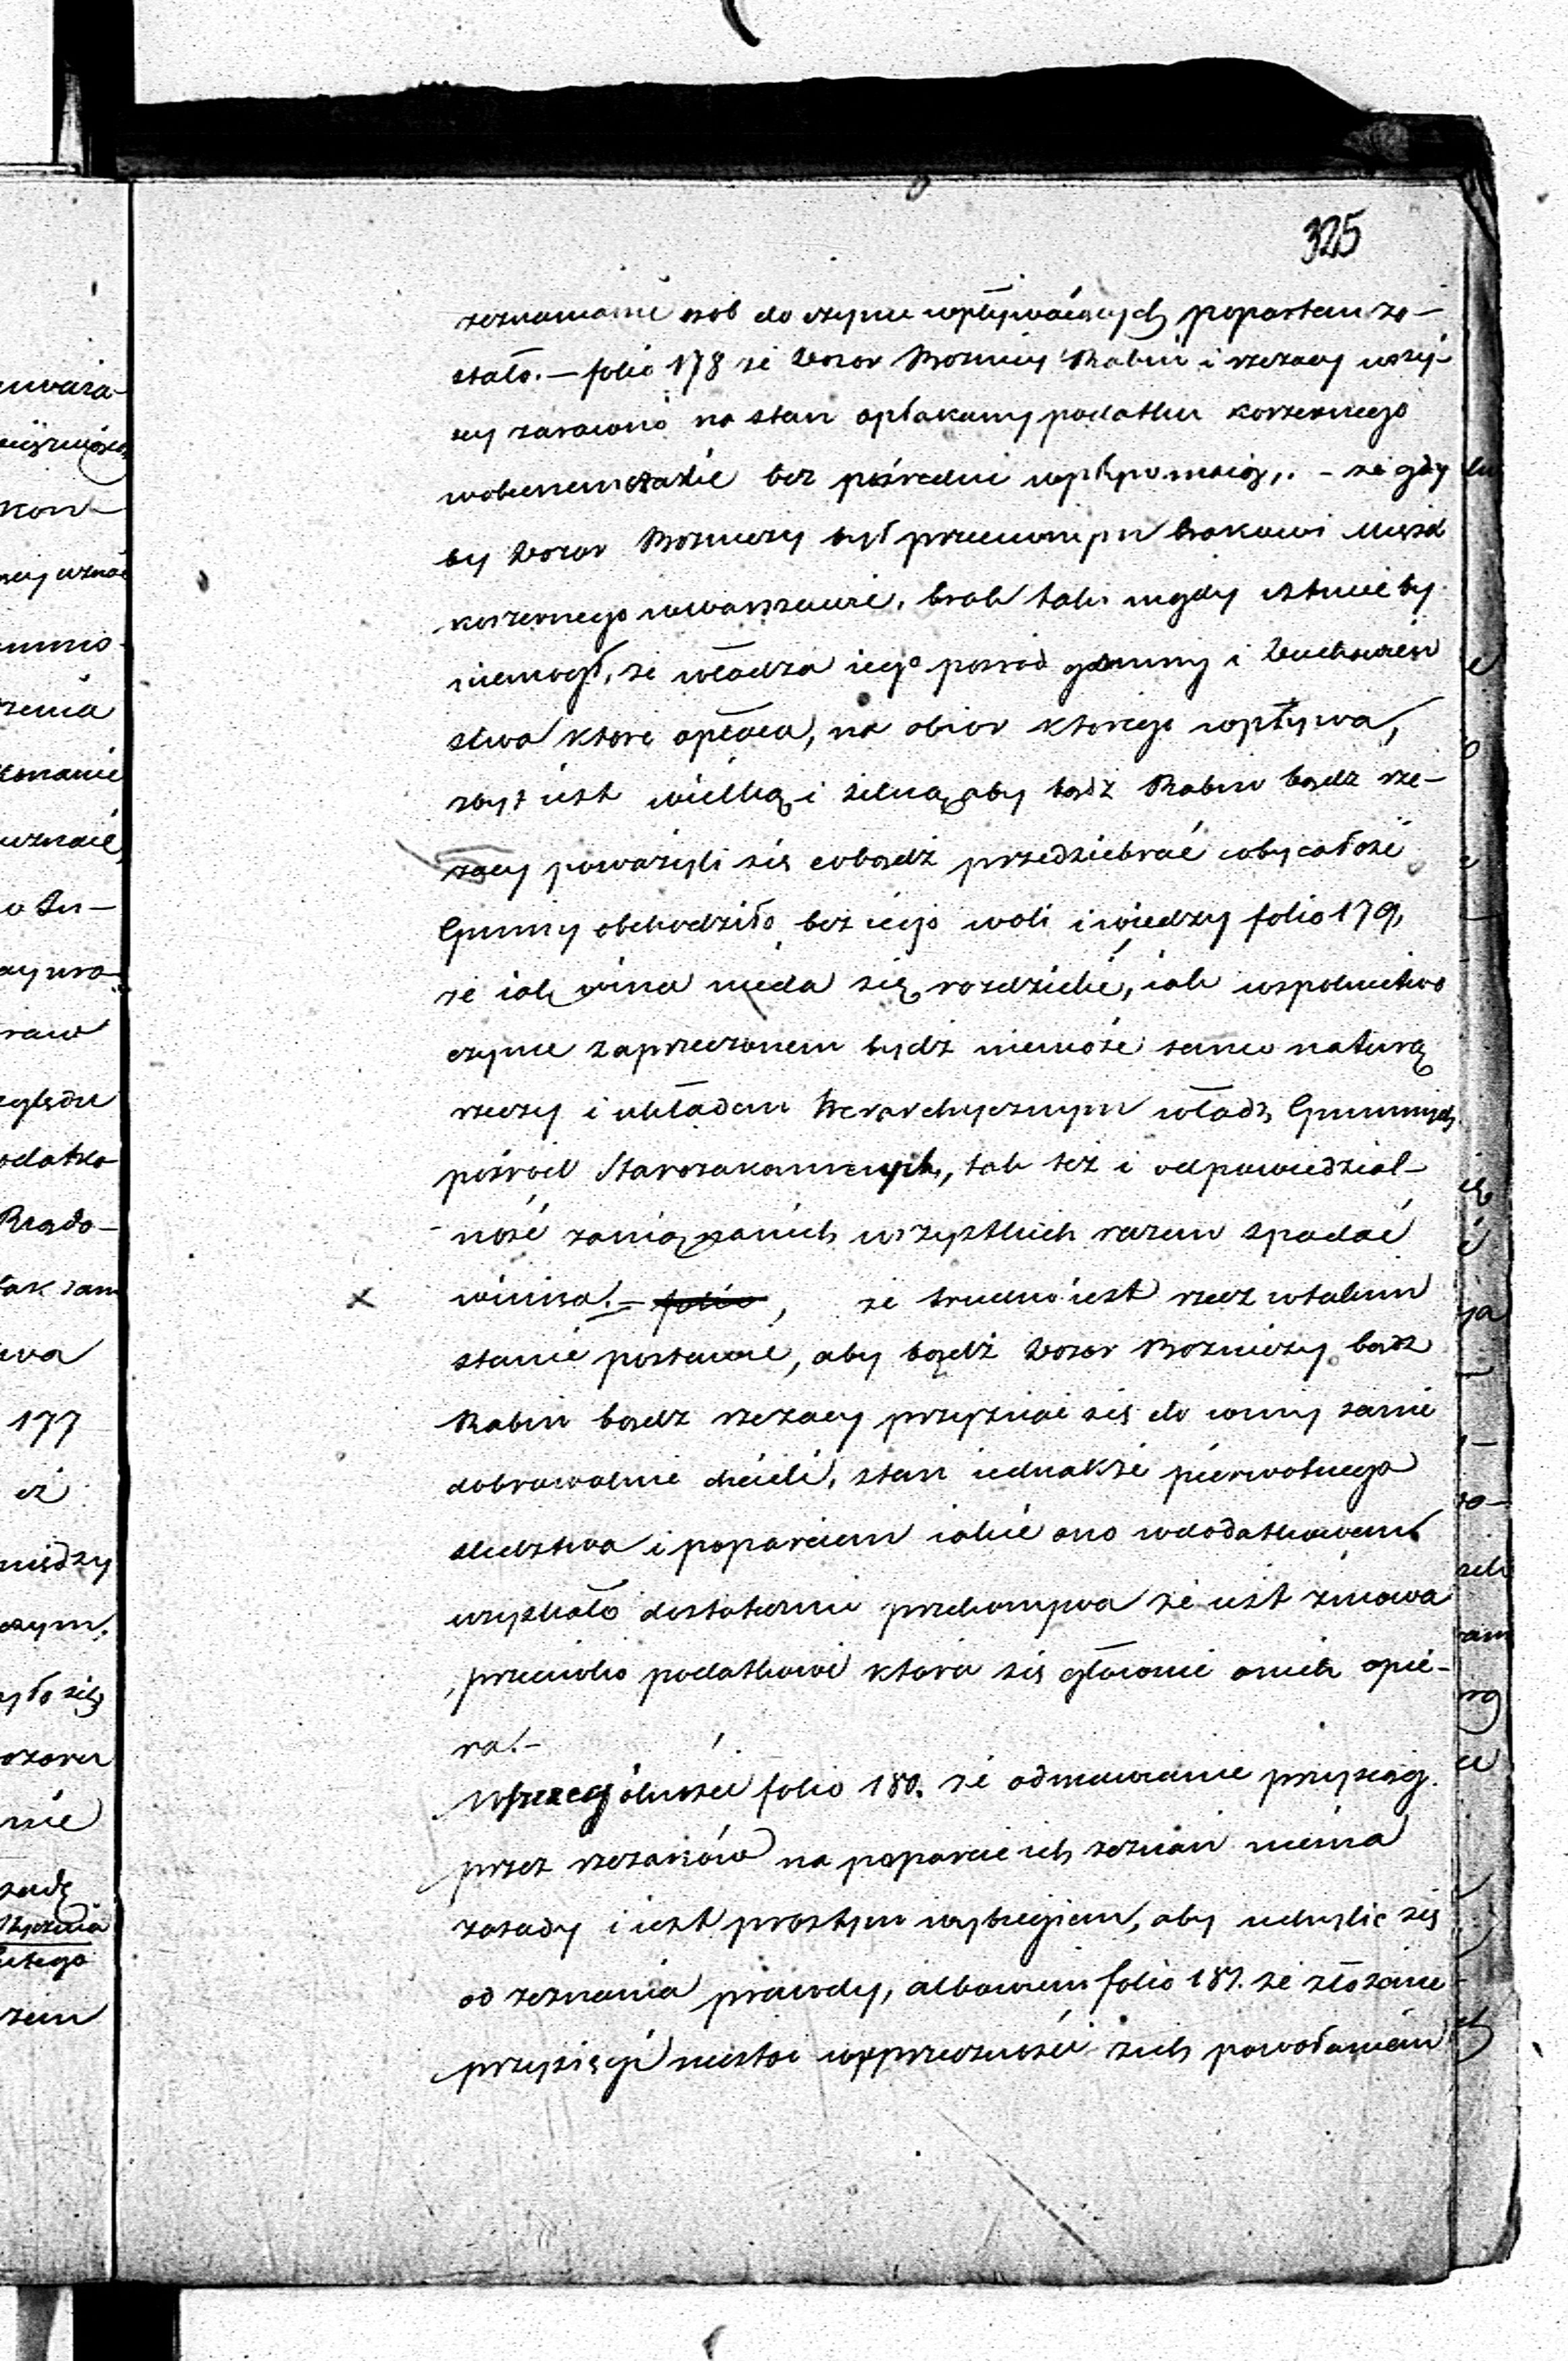 325
zeznaniami osób do czynu wpływaiących popartem zo-
stało. — folio 178 że Dozor Bozniczy Rabin i rzezacy wszy-
scy zarowno na stan opłakany podatku koszernego
w obecnem czasie bez pośrednie wpływ maią, . – że gdy
by Dozor Bozniczy był przeciwnym brakowi mięsa
koszernego w warszawie, brak taki nigdy istnieć by
niemogł, że władza iego posród gminy i Duchowień
stwa ktore opłaca, na obior ktorego wpływa,
zbyt iest wielką i silną, aby bądź Rabin bądz rze-
zacy poważyli się cobądź przedsiebrać coby całość
Gminy obchodziło bez iego woli i wiedzy folio 179,
że iak wina nieda się rozdzielić, iak wspolnictwo
czynu zaprzeczonem bydź niemoże samą naturą
rzeczy i układem Hierarchycznym władz Gminnych
pośród Starozakonnych, tak też i odpowiedzial-
ność za nią na nich wszystkich razem spadać
x winna. – folio, że trudno iest rzecz w takim
stanie postawić, aby bądź Dozor Bozniczy bądz
Rabin bądz rzezacy przyznać się do winy sami
dobrowolnie chcieli, stan iednakże pierwotnego
sledztwa i poparciem iakie ono w dodatkowem
uzyskało dostatecznie przekonywa że iest zmowa
przeciwko podatkowi ktora się głownie o nich opie-
ra. –
W szczegolności folio 180. że odmawianie przysięg.
przez rzezaków na poparcie ich zeznań niema
zasady i iest prostym wybiegiem, aby uchylic się
od zeznania prawdy, albowiem folio 181. że złożenie
przysięgi niestoi w sprzeczności z ich powołaniem